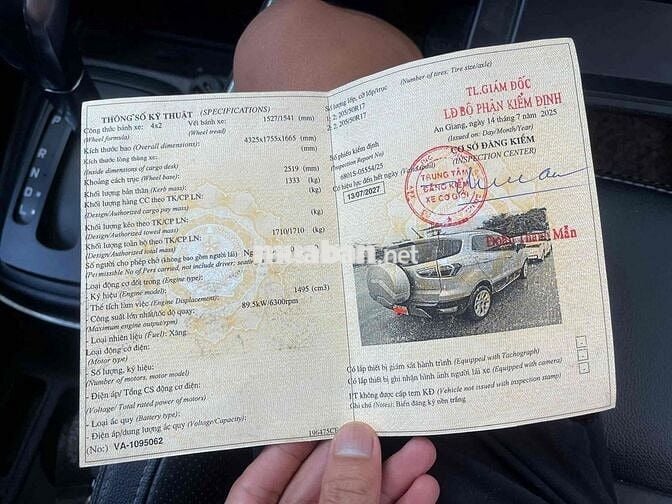 THÔNG SỐ KỸ THUẬT (SPECIFICATIONS)
Công thức bánh xe: 4x2 Vết bánh xe: 1527/1541 (mm)
(Wheel formula) (Wheel tread)
Kích thước bao (Overall dimensions): 4325x1755x1665 (mm)
Kích thước lòng thùng xe:
(Inside dimensions of cargo desk) (mm)
Khoảng cách trục (Wheel base): 2519 (mm)
Khối lượng bản thân (Kerb mass): 1333 (kg)
Khối lượng hàng CC theo TK/CP LN:
(Design/Authorized cargo pay mass) (kg)
Khối lượng kéo theo TK/CP LN:
(Design/Authorized towed mass) (kg)
Khối lượng toàn bộ theo TK/CP LN: 1710/1710 (kg)
(Design/Authorized total mass)
Số người cho phép chở (không bao gồm người lái)
(Permissible No of Pers carried, not include driver; seat
Loại động cơ đốt trong (Engine type):
- Ký hiệu (Engine model):
- Thể tích làm việc (Engine Displacement): 1495 (cm3)
- Công suất lớn nhất/tốc độ quay: 89.5kW/6300rpm
(Maximum engine output/rpm)
Loại nhiên liệu (Fuel): Xăng
Loại động cơ điện:
(Motor type)
- Số lượng, ký hiệu:
(Number of motors, motor model)
- Điện áp/ Tổng CS động cơ điện:
(Voltage/ Total rated power of motors)
- Loại ắc quy (Battery type):
- Điện áp/dung lượng ắc quy (Voltage/Capacity):
(No:) VA-1095062
196475CE
Số lượng lốp, cỡ lốp/trục (Number of tires; Tire size/axle)
1; 2; 205/50R17
2; 2; 205/50R17
TL.GIÁM ĐỐC
LĐ BỘ PHẬN KIỂM ĐỊNH
An Giang, ngày 14 tháng 7 năm 2025
(Issued on: Day/Month/Year)
CƠ SỞ ĐĂNG KIỂM
(INSPECTION CENTER)
Số phiếu kiểm định
(Inspection Report No)
6801S-05554/25
Có hiệu lực đến hết ngày
13/07/2027
TRUNG TÂM
ĐĂNG KIỂM
XE CƠ GIỚI
muaban.net
Có lắp thiết bị giám sát hành trình (Equipped with Tachograph)
Có lắp thiết bị ghi nhận hình ảnh người lái xe (Equipped with camera)
PT không được cấp tem KĐ (Vehicle not issued with inspection stamp)
Ghi chú (Notes): Biển đăng ký nền trắng
R
N
D